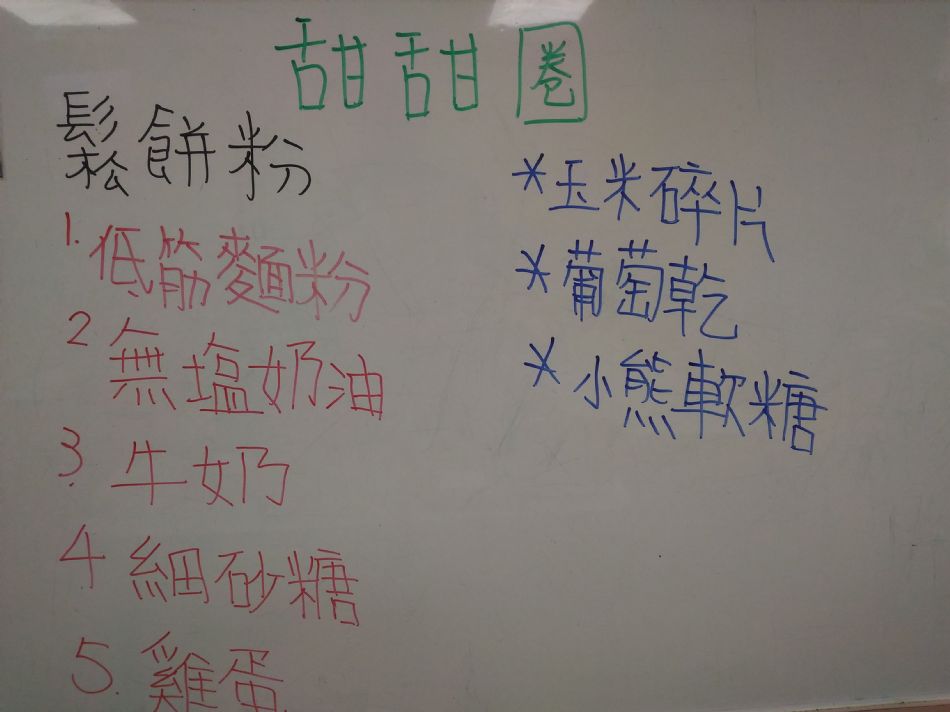 甜甜圈
鬆餅粉
1. 低筋麵粉
2 無塩奶油
3. 牛奶
4 細砂糖
5. 雞蛋
*玉米碎片
*葡萄乾
*小熊軟糖